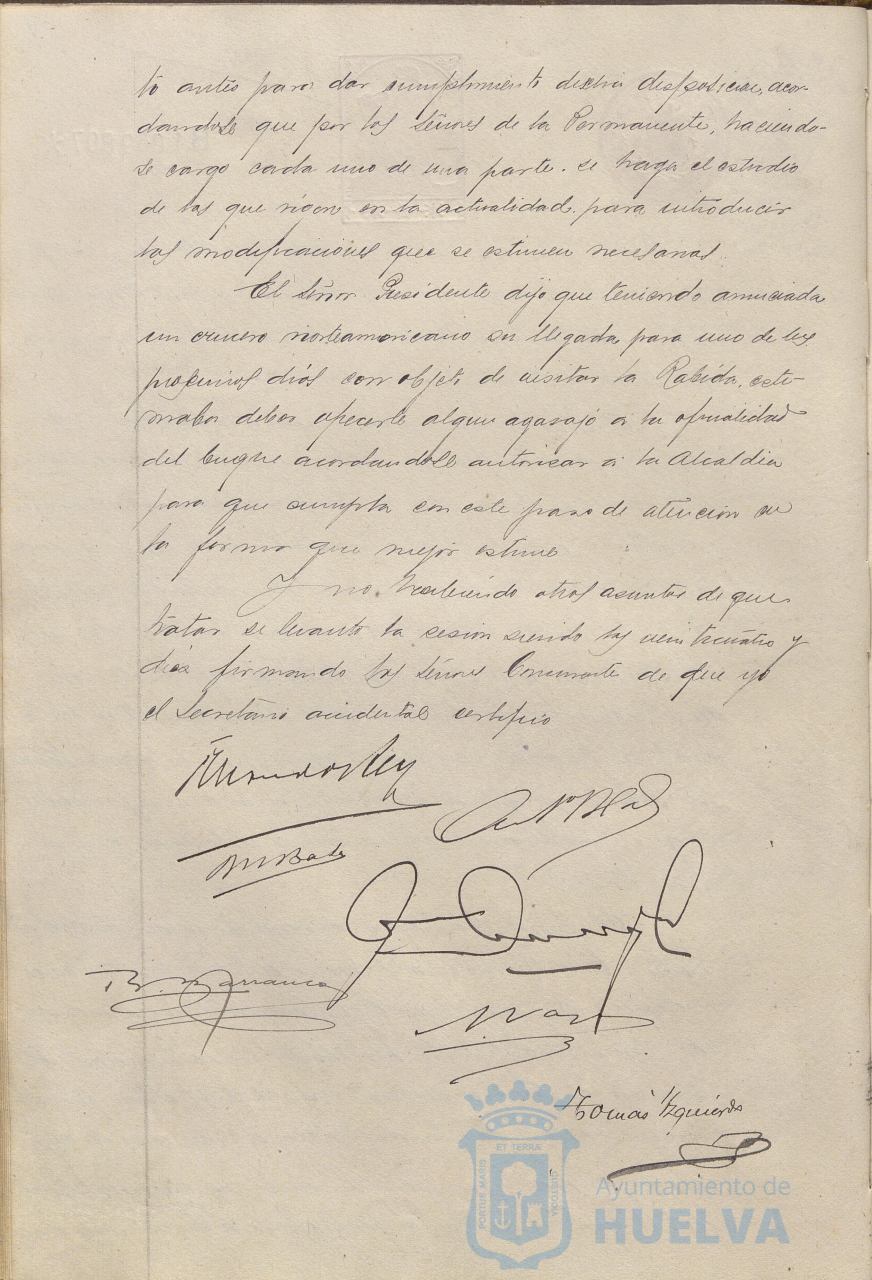 to antes para dar cumplimiento dicha disposicion, acor-
dandose que por los Señores de la Permanente, haciendo-
se cargo cada uno de una parte. se haga el estudio
de las que rigen en la actualidad. para introducir
las modificaciones que se estimen necesarias.
El Señor Presidente dijo que teniendo anunciada
un crucero norteamericano su llegada para uno de los
proximos dias con objeto de visitar la Rabida, esti-
maba deber ofrecerle algun agasajo a la oficialidad
del buque acordandose autorizar a la Alcaldia
para que cumpla con este paso de atencion en
la forma que mejor estime
Y no habiendo otros asuntos de que
tratar se levanto la sesion siendo las veinticuatro y
diez firmando los Señores Concurrentes de que yo
el Secretario accidental certifico
B. Barranca
Tomás Izquierdo
ET TERRA
PORTUS MARIS
CUSTODIA
Ayuntamiento de
HUELVA